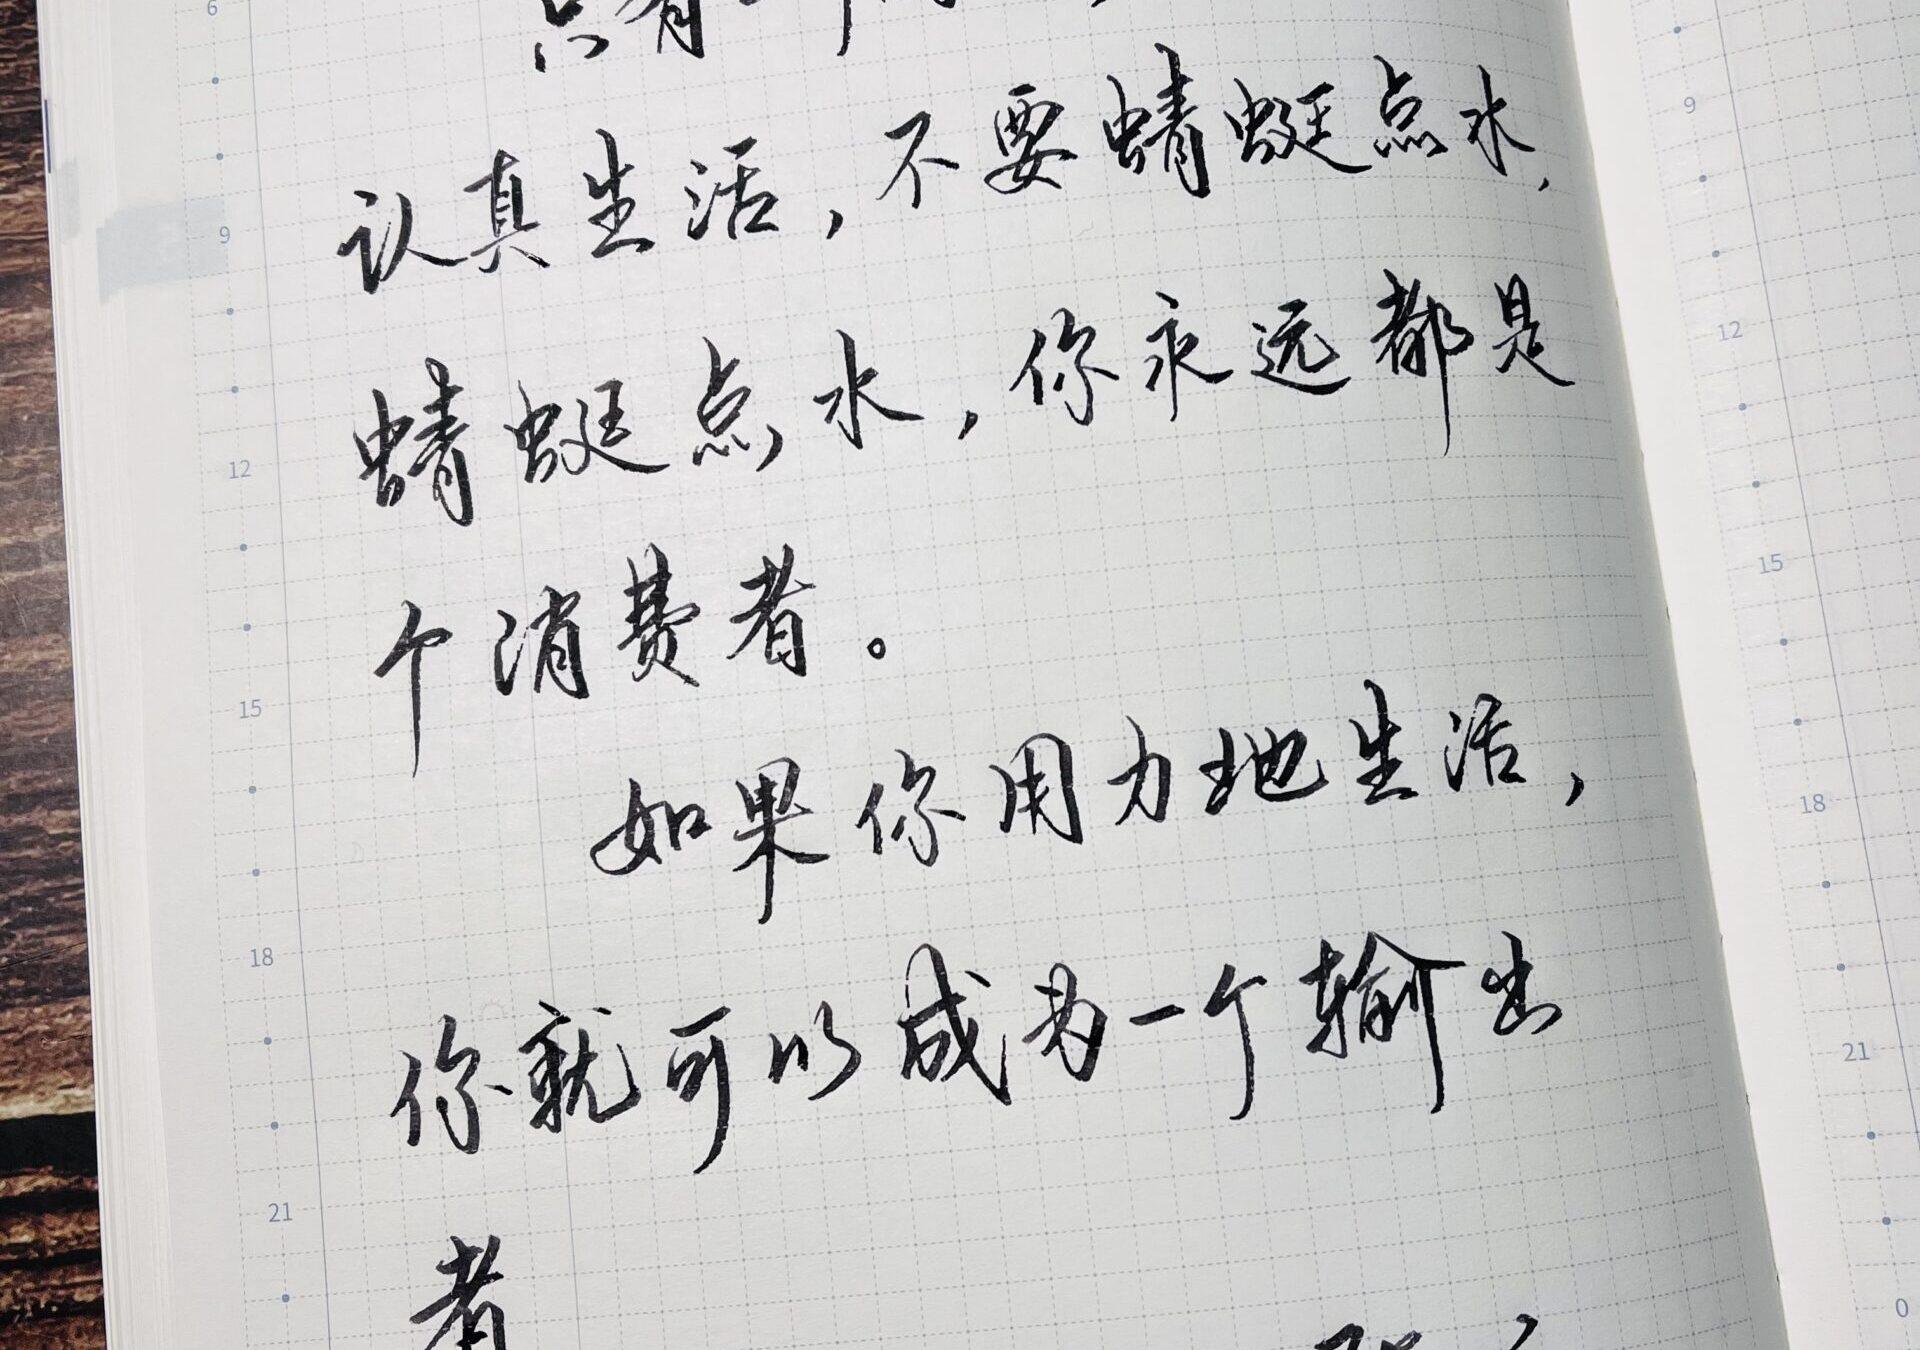 6
只有一
9
认真生活，不要蜻蜓点水，
9
蜻蜓点水，你永远都是
12
12
个消费者。
15
15
如果你用力地生活，
18
18
你就可以成为一个输出
21
21
者
0